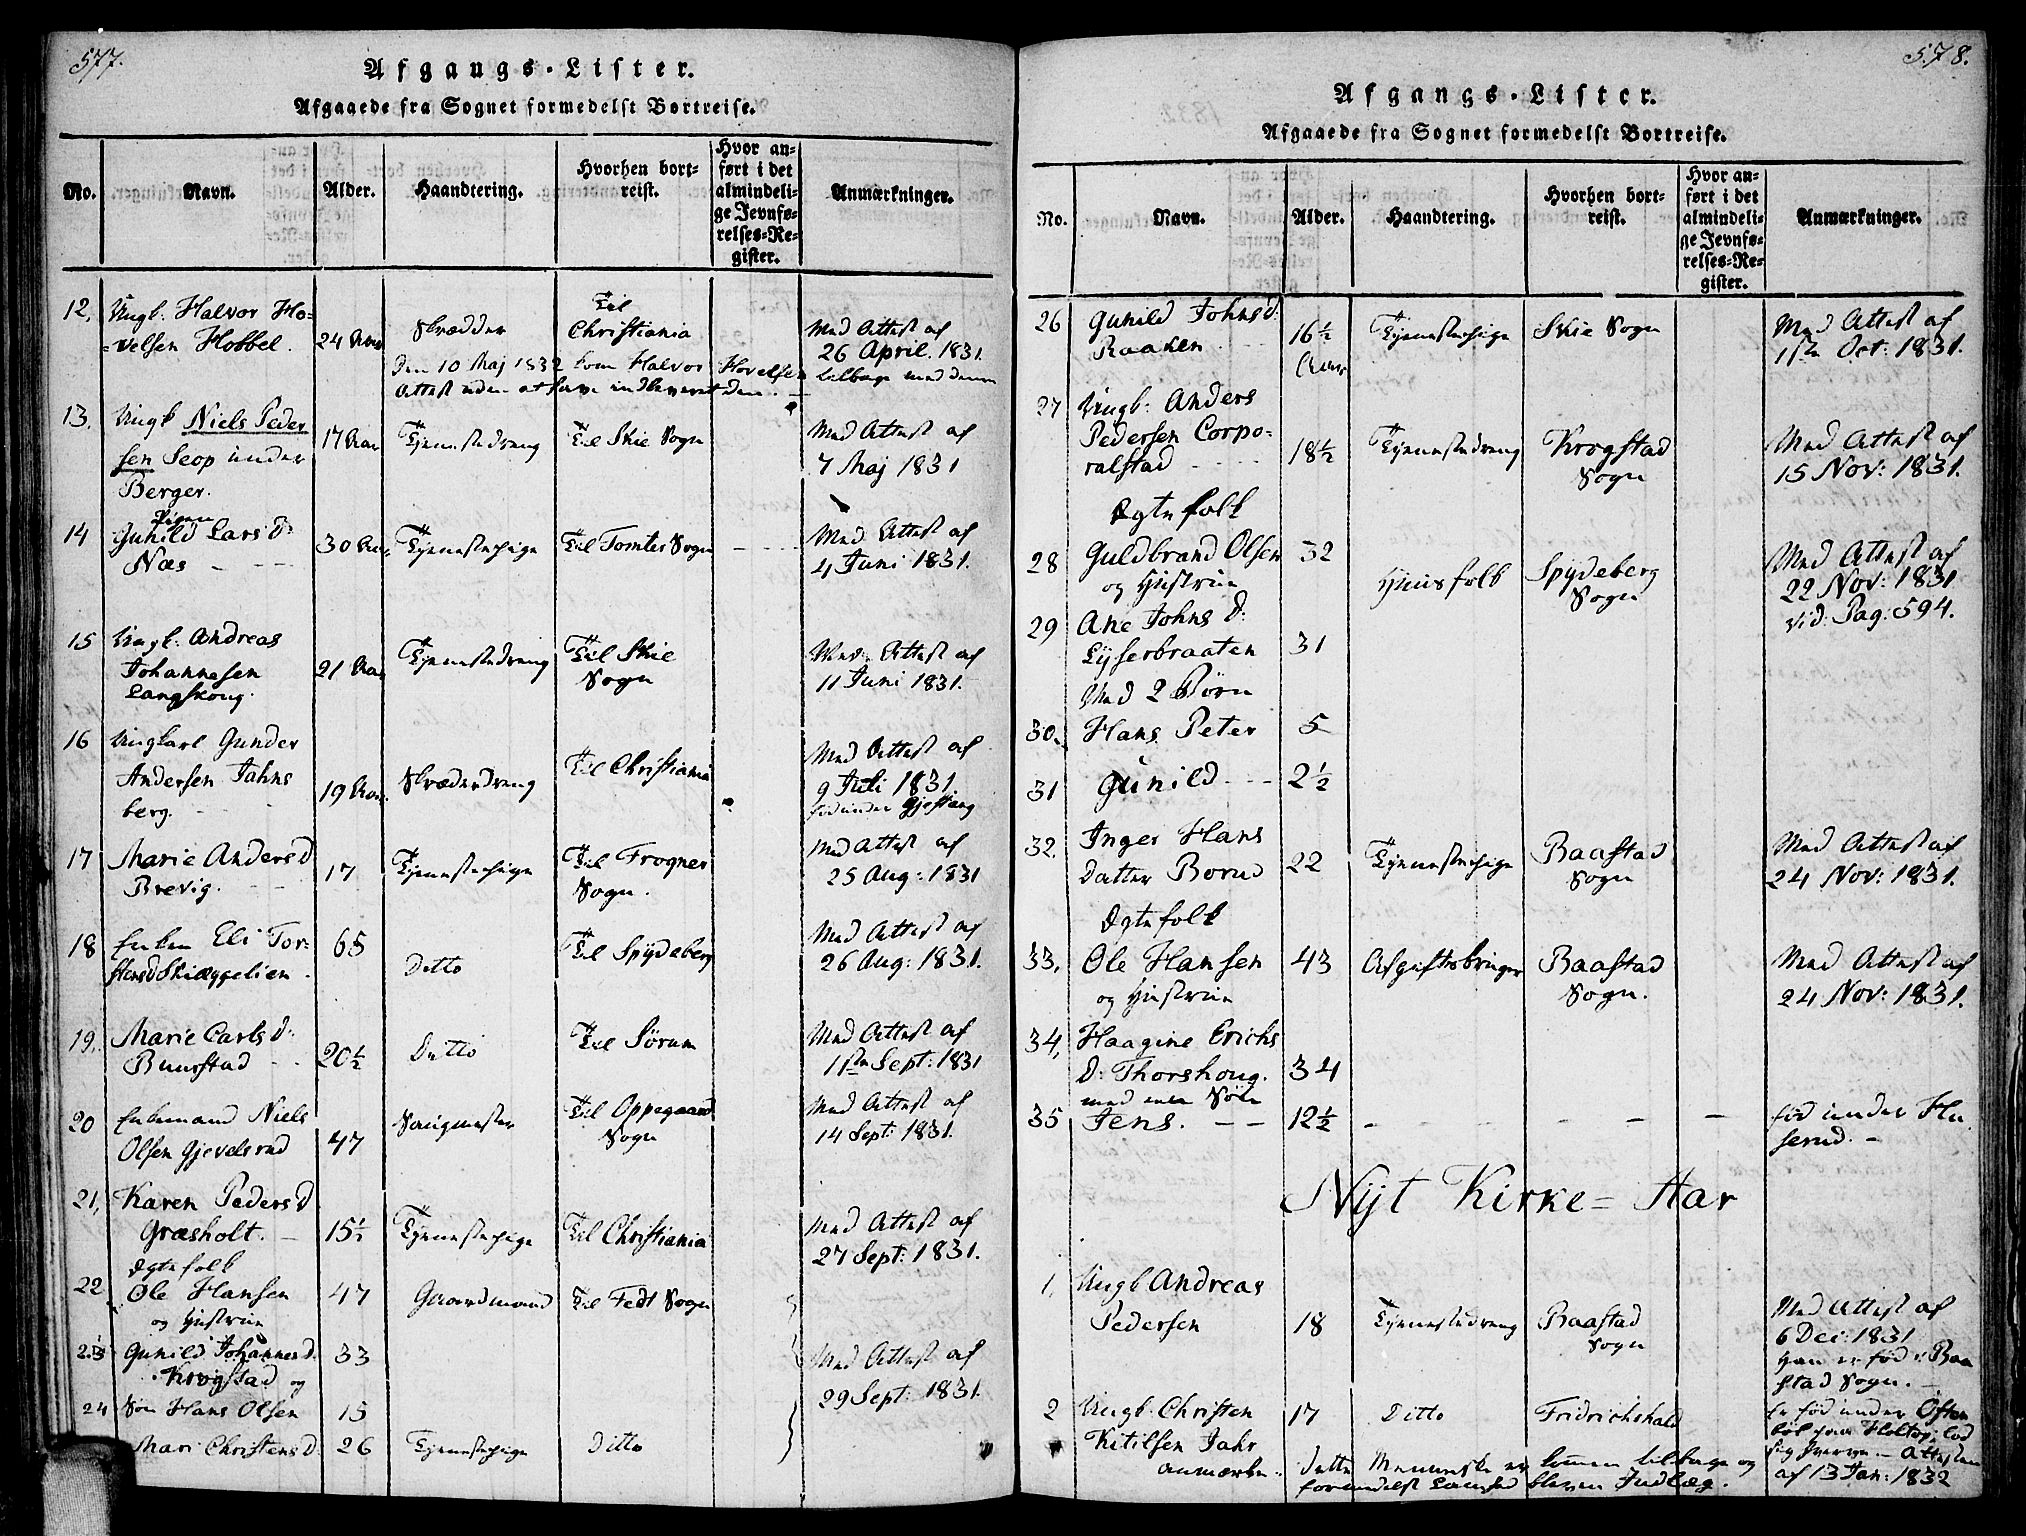 577.
Afgangs-Lister.
Afgaaede fra Sognet formedelst Bortreise.
No.
Navn.
Alder.
Haandtering.
Hvorhen bort-
reist.
Hvor an-
ført i det
almindeli-
ge Jevnfø-
relses-Re-
gister.
Anmærkninger.
12. Ungk: Halvor Ho-
velsen Hobbel. 24 Aar Skrædder Til
Christiania Med Attest af
26 April. 1831.
Den 10 Maj 1832 kom Halvor Hovelsen tilbage med denne
Attest uden at have indleveret den.
13. Ungk Niels Peder
sen Seop under
Berger. 17 Aar Tjenestedreng Til Skie Sogn Med Attest af
7 Maj 1831
14 Pigen
Gunild Lars D:
Næs 30 Aar Tjenestepige Til Tomter Sogn Med Attest af
4 Juni 1831.
15 Ungk: Andreas
Johannesen
Langskoug. 21 Aar Tjenestedreng Til Skie
Sogn Med Attest af
11 Juni 1831.
16 Ungkarl Gunder
Andersen Jahns
berg. 19 Aar. Skrædderdreng Til Christiania Med Attest af
9 Juli 1831
født under Gjestang
17 Marie Anders D
Brevig. 17 Tjenestepige Til Frogner
Sogn. Med Attest af
25 Aug: 1831
18 Enken Eli Tor-
stensd Skiæggelien. 65 Ditto Til Spydeberg Med Attest af
26 Aug: 1831.
19. Marie Carls D:
Buurstad 20½ Ditto Til Sörum Med Attest af
1ste Sept: 1831
20 Enkemand Niels
Olsen Gjevelsrud 47 Saugmester Til Oppegaard
Sogn Med Attest af
14 Sept: 1831.
21, Karen Peders D
Græsholt. 15½ Tjenestepige Til Christiania Med Attest af
27 Sept: 1831.
Ægtefolk
22 Ole Hansen
og Hustrue 47 Gaardmand Til Fedt Sogn
23 Gunild Johannes D.
Krogstad og 33 Med Attest af
29 Sept: 1831.
24 Søn Hans Olsen 15
Mari Christens D 26 Tjenestepige ditto
578.
Afgangs-Lister.
Afgaaede fra Sognet formedelst Bortreise.
No.
Navn.
Alder.
Haandtering.
Hvorhen bort-
reist.
Hvor an-
ført i det
almindeli-
ge Jevnfø-
relses-Re-
gister.
Anmærkninger.
26 Gunild Johns D:
Raaken 16½
Aar Tjenestepige Skie Sogn Med Attest af
11te Oct: 1831.
27 Ungk: Anders
Pedersen Corpo-
ralstad 18½ Tjenestedreng Krogstad
Sogn Med Attest af
15 Nov: 1831.
Ægtefolk
28 Guldbrand Olsen
og Hustrue 32 Huusfolk Spydeberg
Sogn Med Attest af
22 Nov: 1831
vid: Pag. 594.
29 Ane Johns D:
Lyserbraaten 31
Med 2 Børn
30. Hans Peter 5
31 Gunild 2½
32. Inger Hans
Datter Borud 22 Tjenestepige Baastad
Sogn Med Attest af
24 Nov: 1831.
Ægtefolk
33. Ole Hansen
og Hustrue 43 Afgiftsbruger Baastad
Sogn. Med Attest af
24 Nov: 1831.
34, Haagine Erichs
D: Thorshoug. 34
med een Søn
35 Jens. 12½ fød under Hu
serud.
Nyt Kirke=Aar
1, Ungk Andreas
Pedersen 18 Tjenestedreng Baastad
Sogn Med Attest af
6 Dec: 1831
Han er fød i Baa
stad Sogn.
2 Ungk: Christen
Kitilsen Jahr 17 Ditto Fridrichshald Er fød under Östen
böl paa Holtop, lod
sig Attesten
af 13 Jan: 1832
anmærkn: dette Menneske er kommen tilbage og
formedelst bleven Indlæg.